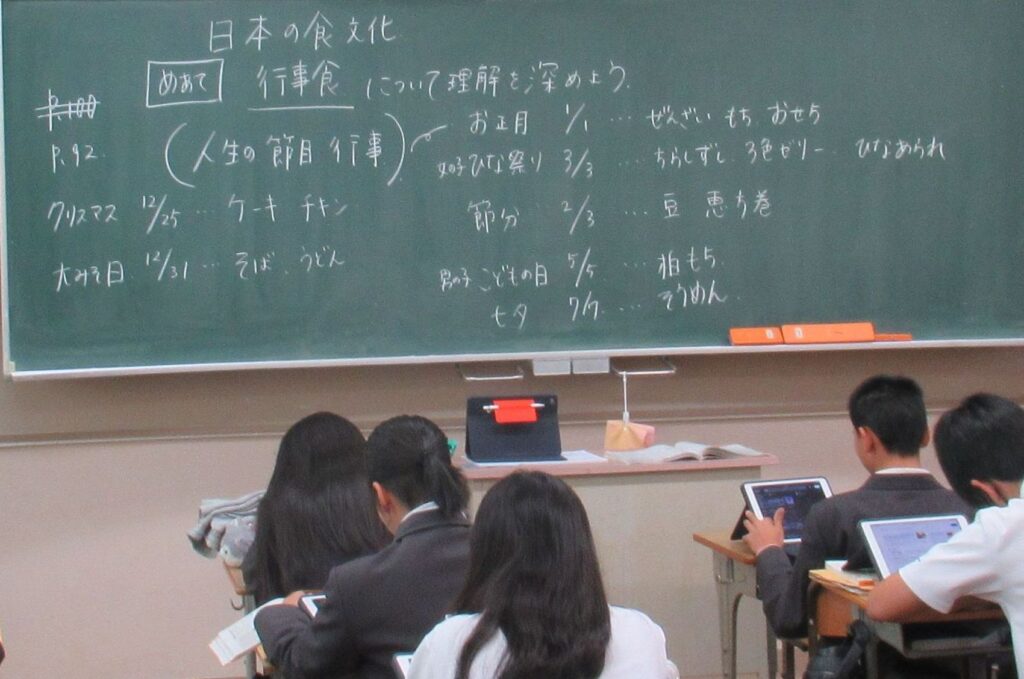 日本の食文化
めあて 行事食 について理解を深めよう。
P.100
P.92
(人生の節目 行事)
お正月 1/1 … ぜんざい もち おせち
女の子 ひな祭り 3/3 … ちらしずし 3色ゼリー ひなあられ
節分 2/3 … 豆 恵方巻
男の子 こどもの日 5/5 … 柏もち
七夕 7/7 … そうめん
クリスマス 12/25 … ケーキ チキン
大みそ日 12/31 … そば、うどん